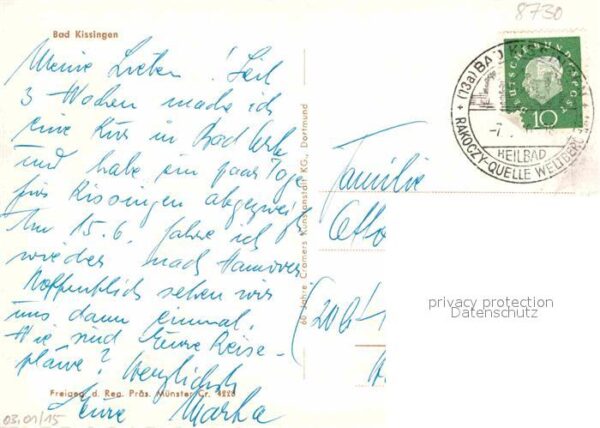 8730
Bad Kissingen
Meine Lieben! Seit
3 Wochen mache ich
eine Kur in Bad
und habe ein paar Tage
für Kissingen abgezweigt
Am 15.6. fahre ich
wieder nach Hannover
Hoffentlich sehen wir
uns dann einmal.
Wie sind Eure Reise-
pläne? Herzlichst
Eure
Freigeg. d. Reg. Präs. Münster Cr. 4228
03.01/15
60 Jahre Cramers Kunstanstalt KG., Dortmund
Familie
Otto
(20
privacy protection
Datenschutz
(13a) BAD KISSINGEN
HEILBAD
RAKOCZY-QUELLE WELTBERÜHMT
DEUTSCHE BUNDESPOST
10